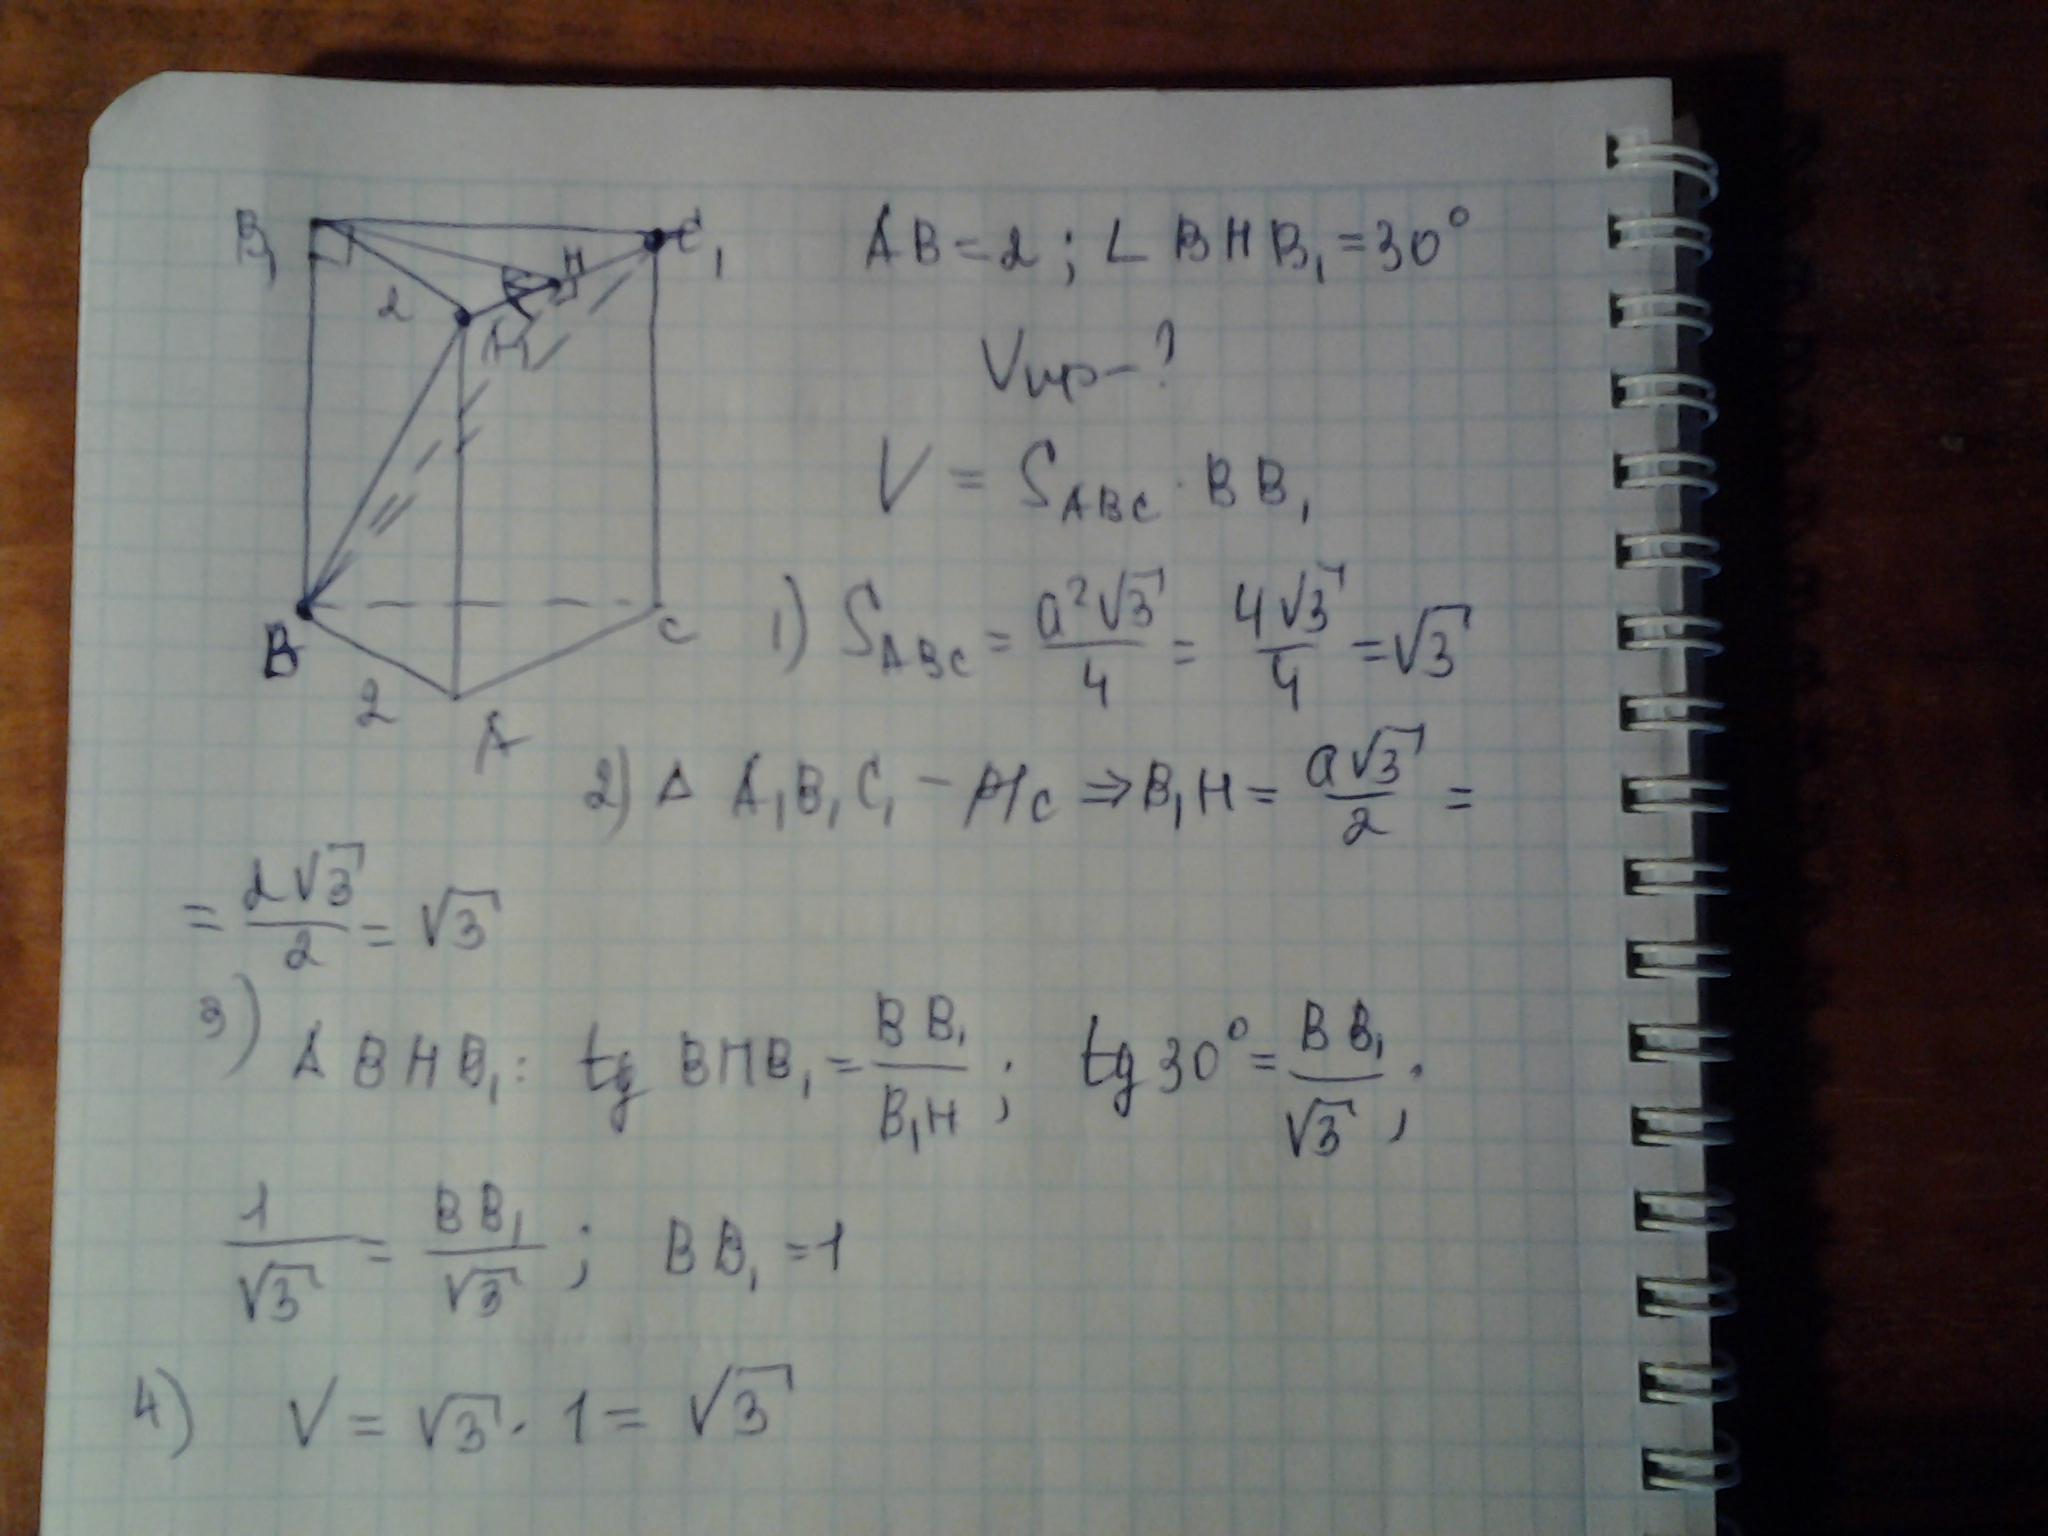 B₁ C₁ H
2 A₁
B C
2 A
AB = 2 ; ∠ BHB₁ = 30°
Vпр - ?
V = S_ABC · BB₁
1) S_ABC = a²√3/4 = 4√3/4 = √3
2) Δ A₁B₁C₁ - р/с ⇒ B₁H = a√3/2 =
= 2√3/2 = √3
3) Δ BHB₁: tg BHB₁ = BB₁/B₁H ; tg 30° = BB₁/√3 ;
1/√3 = BB₁/√3 ; BB₁ = 1
4) V = √3 · 1 = √3